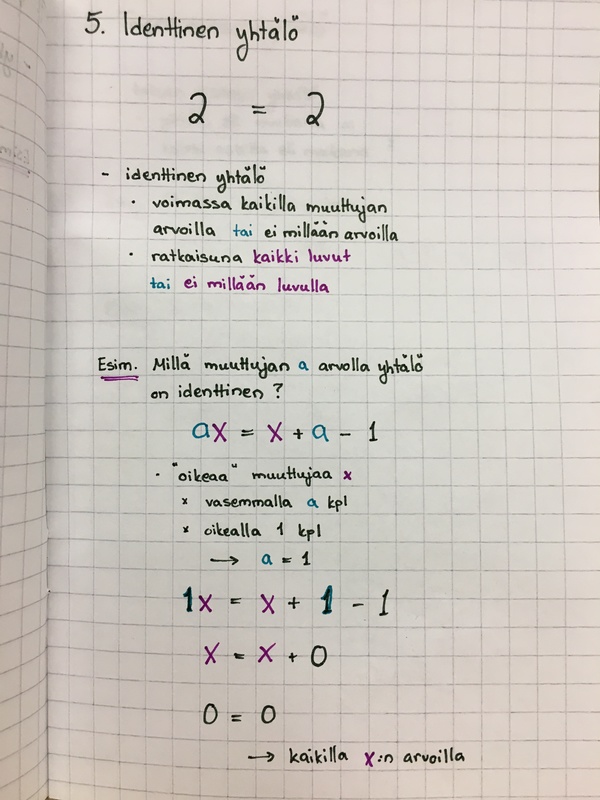 5. Identtinen yhtälö
2 = 2
- identtinen yhtälö
· voimassa kaikilla muuttujan
arvoilla tai ei millään arvoilla
· ratkaisuna kaikki luvut
tai ei millään luvulla
Esim. Millä muuttujan a arvolla yhtälö
on identtinen?
ax = x + a - 1
· "oikeaa" muuttujaa x
× vasemmalla a kpl
× oikealla 1 kpl
→ a = 1
1x = x + 1 - 1
x = x + 0
0 = 0
→ kaikilla x:n arvoilla